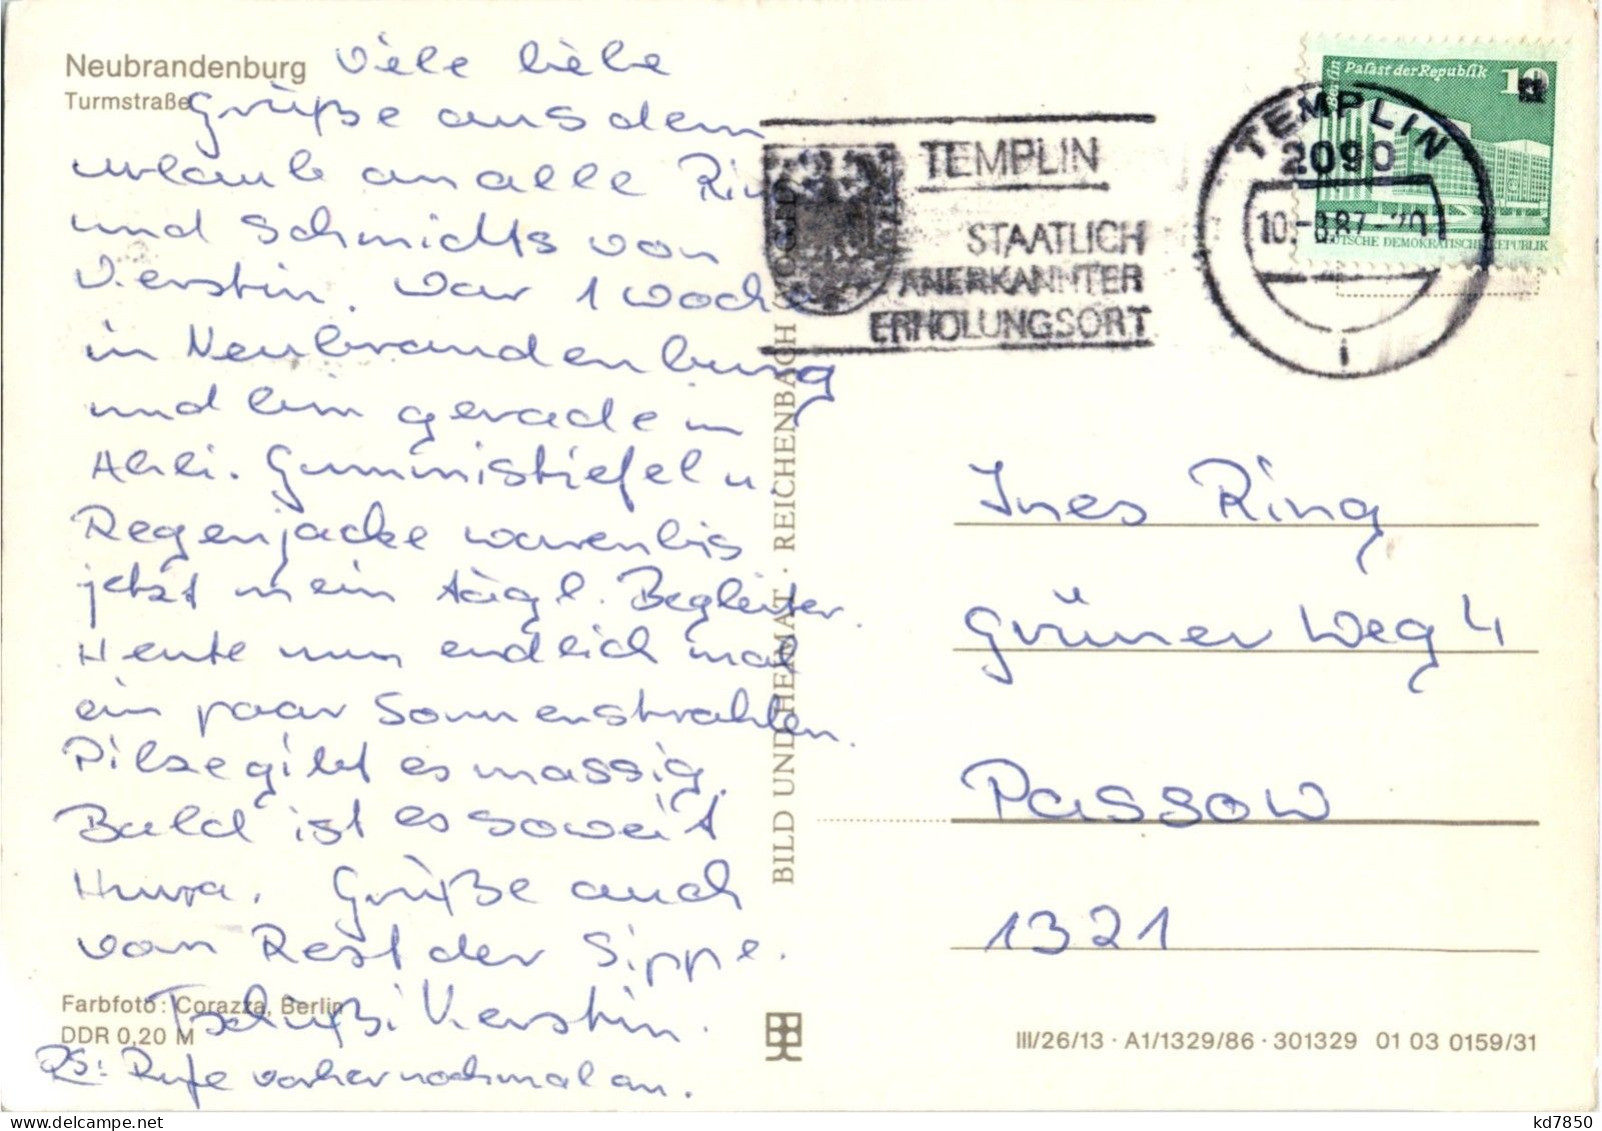 Neubrandenburg
Turmstraße
Viele liebe
Grüße aus dem
Urlaub an alle
und Schmidts von
Kerstin. War 1 Woche
in Neubrandenburg
und bin gerade in
Ahli. Gummistiefel u.
Regenjacke waren bis
jetzt mein tägl. Begleiter.
Heute nun endlich mal
ein paar Sonnenstrahlen.
Pilze gibt es massig.
Bald ist es soweit
Hurra. Grüße auch
vom Rest der Sippe.
Tschüßi Kerstin.
PS: Rufe vorher nochmal an.
Farbfoto: Corazza, Berlin
DDR 0,20 M
BILD UND HEIMAT · REICHENBACH
TEMPLIN
STAATLICH
ANERKANNTER
ERHOLUNGSORT
TEMPLIN
2090
Berlin
Palast der Republik
10
DEUTSCHE DEMOKRATISCHE REPUBLIK
Ines Ring
Grüner Weg 4
Passow
1321
III/26/13 · A1/1329/86 · 301329 01 03 0159/31
kd7850